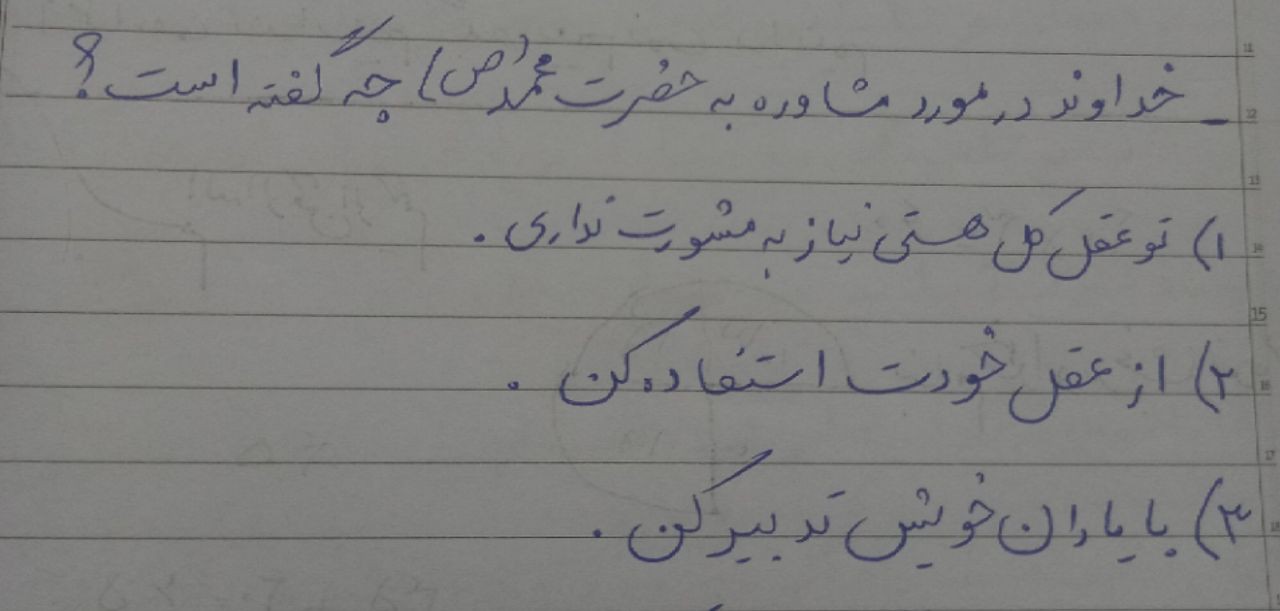 _ خداوند در مورد مشاوره به حضرت محمد (ص) چه گفته است؟
۱) تو عقل کل هستی نیاز به مشورت نداری.
۲) از عقل خودت استفاده کن.
۳) با یاران خویش تدبیر کن.